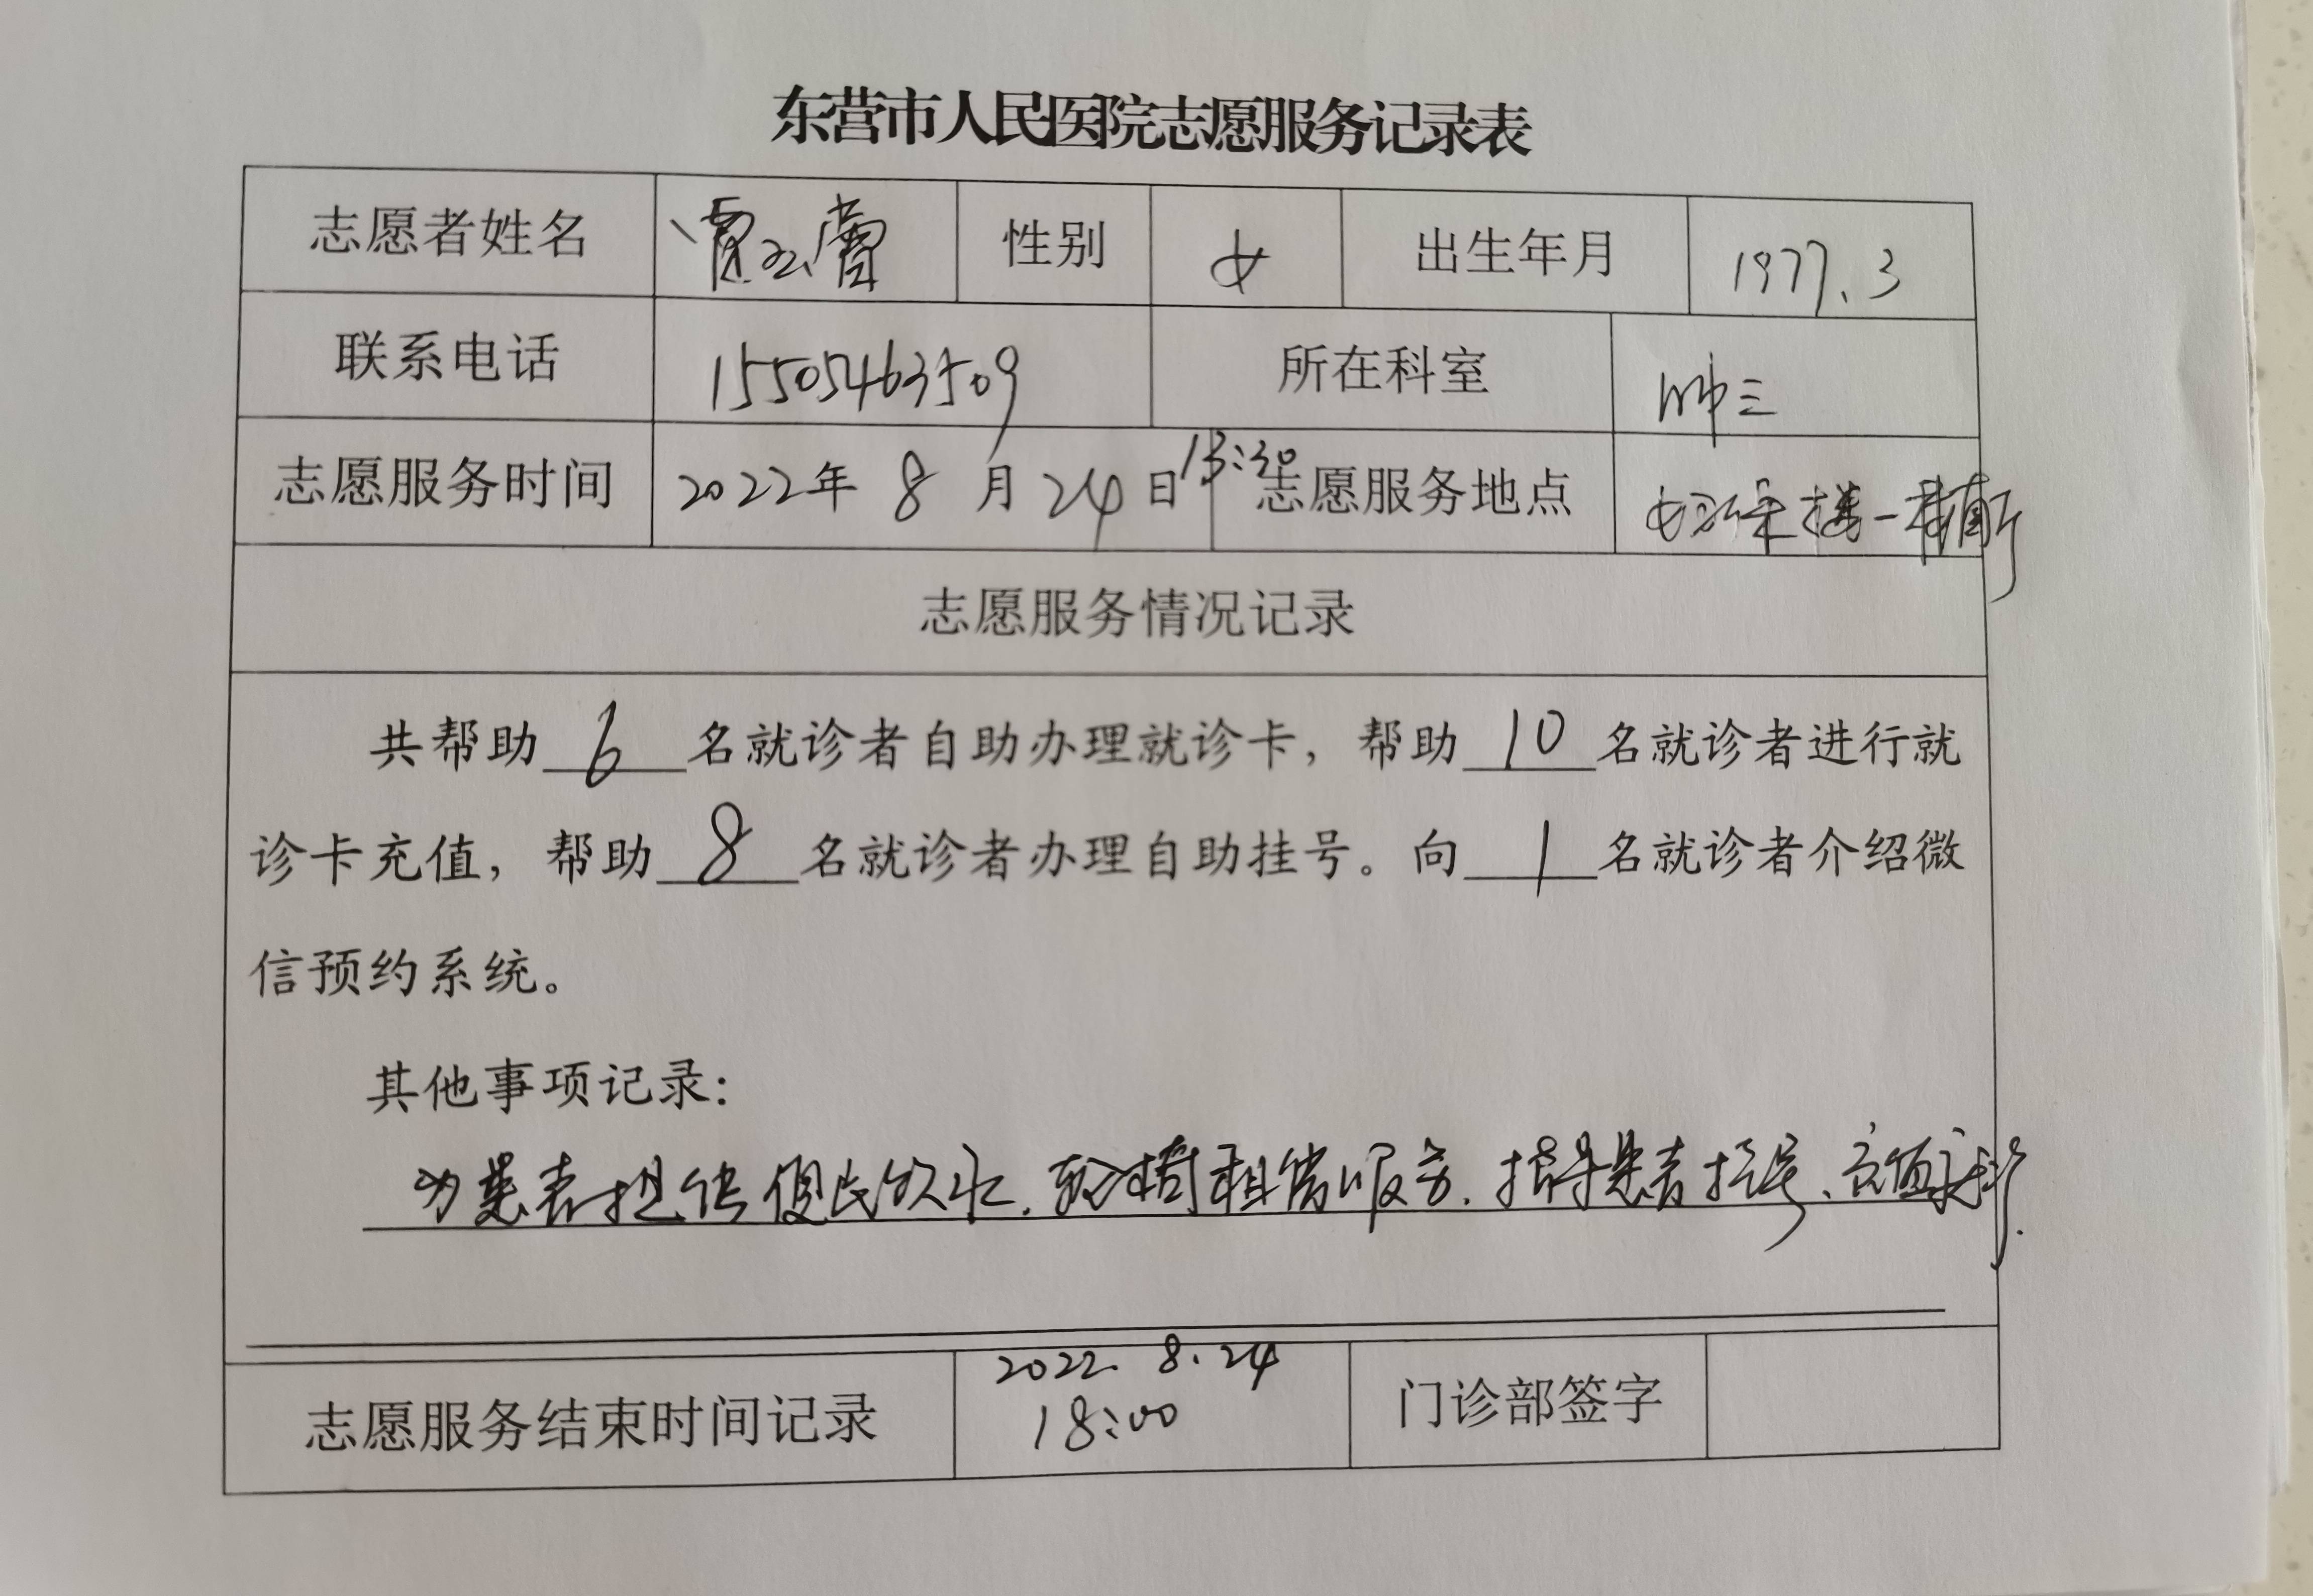 东营市人民医院志愿服务记录表
志愿者姓名 贾 性别 女 出生年月 1977.3
联系电话 15505463509 所在科室 三
志愿服务时间 2022年 8 月 24 日 13:30 志愿服务地点 妇保楼一楼前厅
志愿服务情况记录
共帮助 6 名就诊者自助办理就诊卡，帮助 10 名就诊者进行就
诊卡充值，帮助 8 名就诊者办理自助挂号。向 1 名就诊者介绍微
信预约系统。
其他事项记录：
为患者提供便民饮水、轮椅租借服务.指导患者挂号、充值
2022.8.24
志愿服务结束时间记录 18:00 门诊部签字